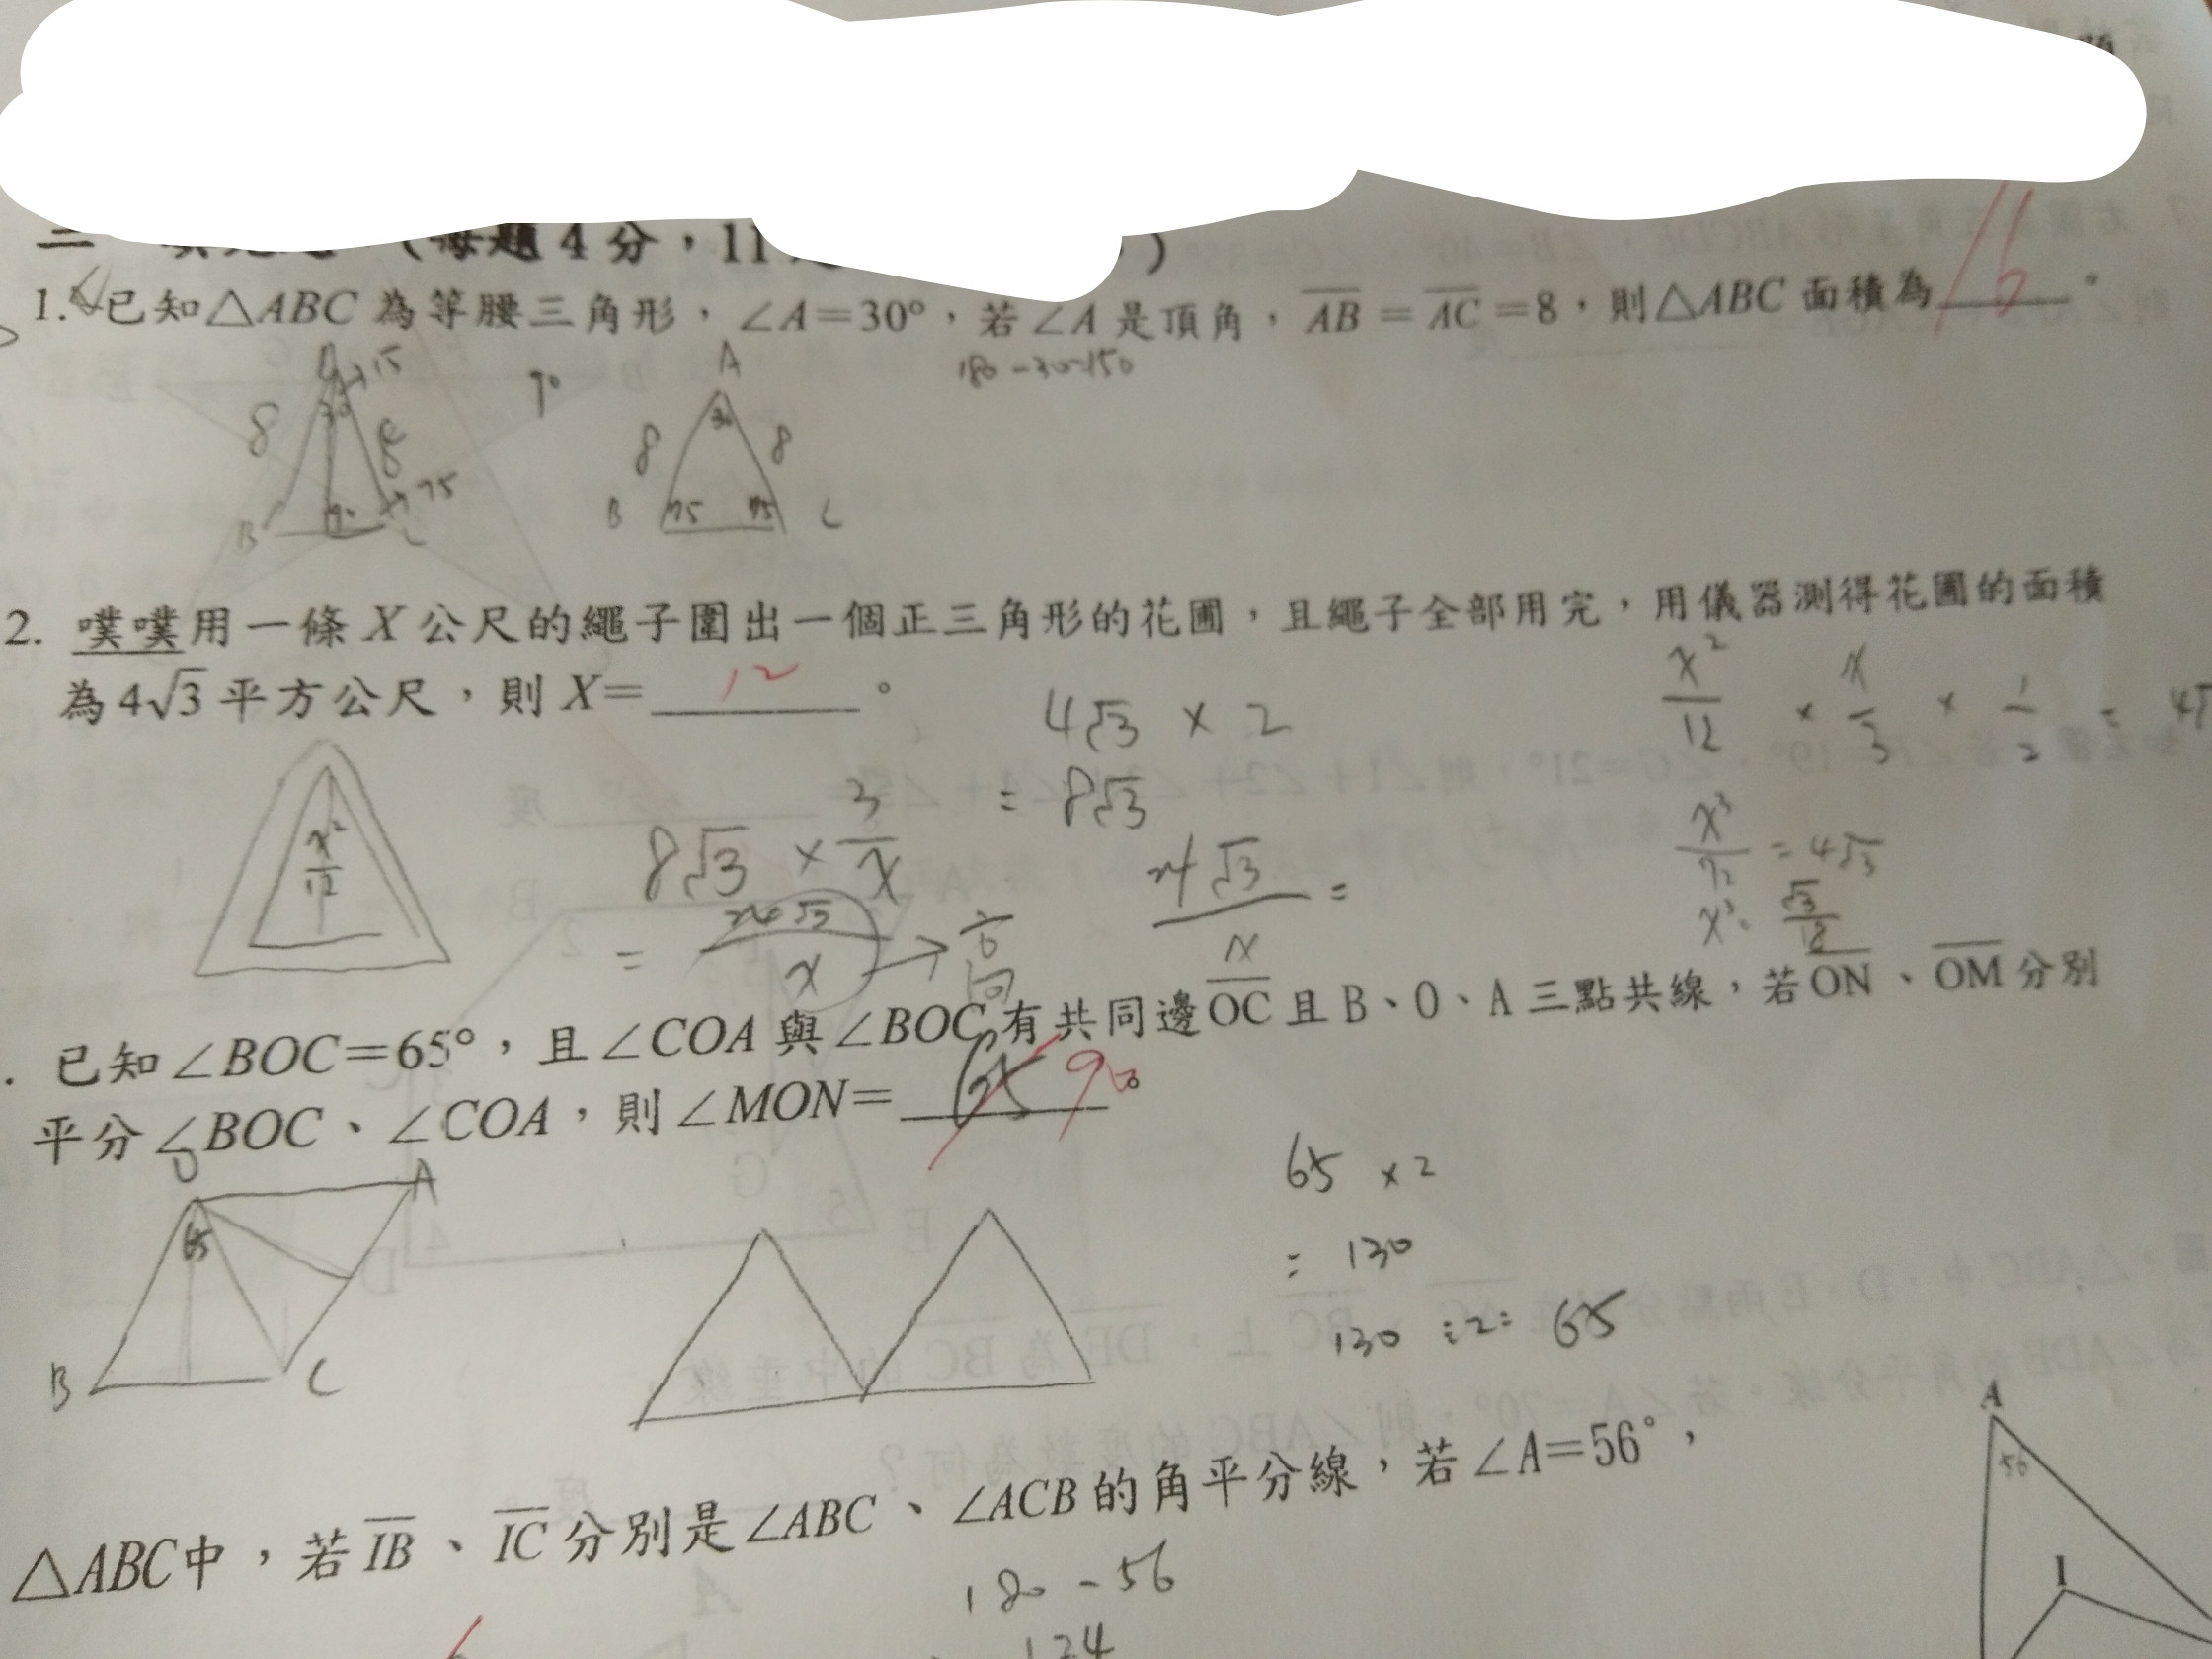 (每題4分，11
)
1. 已知△ABC 為等腰三角形，∠A=30°，若∠A 是頂角，AB = AC =8，則△ABC 面積為 16 。
180-30=150
A
15
30
8
8
75
90
B
C
90
A
30
8
8
75
75
B
C
2. 噗噗用一條 X 公尺的繩子圍出一個正三角形的花圃，且繩子全部用完，用儀器測得花圃的面積
為 4√3 平方公尺，則 X= 12 。
4√3 × 2
= 8√3
x²/12 × x/3 × 1/2 = 4√
x²/12
8√3 × 3/x
= 24√3/x → 高
24√3/x =
x³/72 = 4√3
. 已知∠BOC=65°，且∠COA 與∠BOC 有共同邊OC 且 B、O、A 三點共線，若ON、OM 分別
平分∠BOC、∠COA，則∠MON= 65 90 。
O
A
65
B
C
65 ×2
= 130
130 ÷2= 65
△ABC中，若IB、IC分別是∠ABC、∠ACB的角平分線，若∠A=56°，
180-56
124
A
56
I